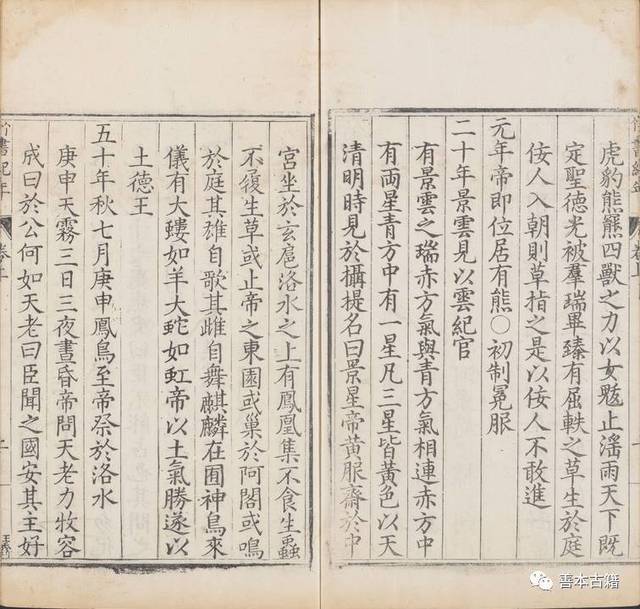 虎豹熊羆四獸之力以女魃止滛雨天下既
定聖德光被羣瑞畢臻有屈軼之草生於庭
佞人入朝則草指之是以佞人不敢進
元年帝即位居有熊〇初制冕服
二十年景雲見以雲紀官
有景雲之瑞赤方氣與青方氣相連赤方中
有兩星青方中有一星凡三星皆黃色以天
清明時見於攝提名曰景星帝黃服齋於中
宮坐於玄扈洛水之上有鳳凰集不食生蟲
不履生草或止帝之東園或巢於阿閣或鳴
於庭其雄自歌其雌自舞麒麟在囿神鳥來
儀有大螻如羊大如虹帝以土氣勝遂以
土德王
五十年秋七月庚申鳳鳥至帝祭於洛水
庚申天霧三日三夜晝昏帝問天老力牧容
成曰於公何如天老曰臣聞之國安其主好
竹書紀年
善本古籍